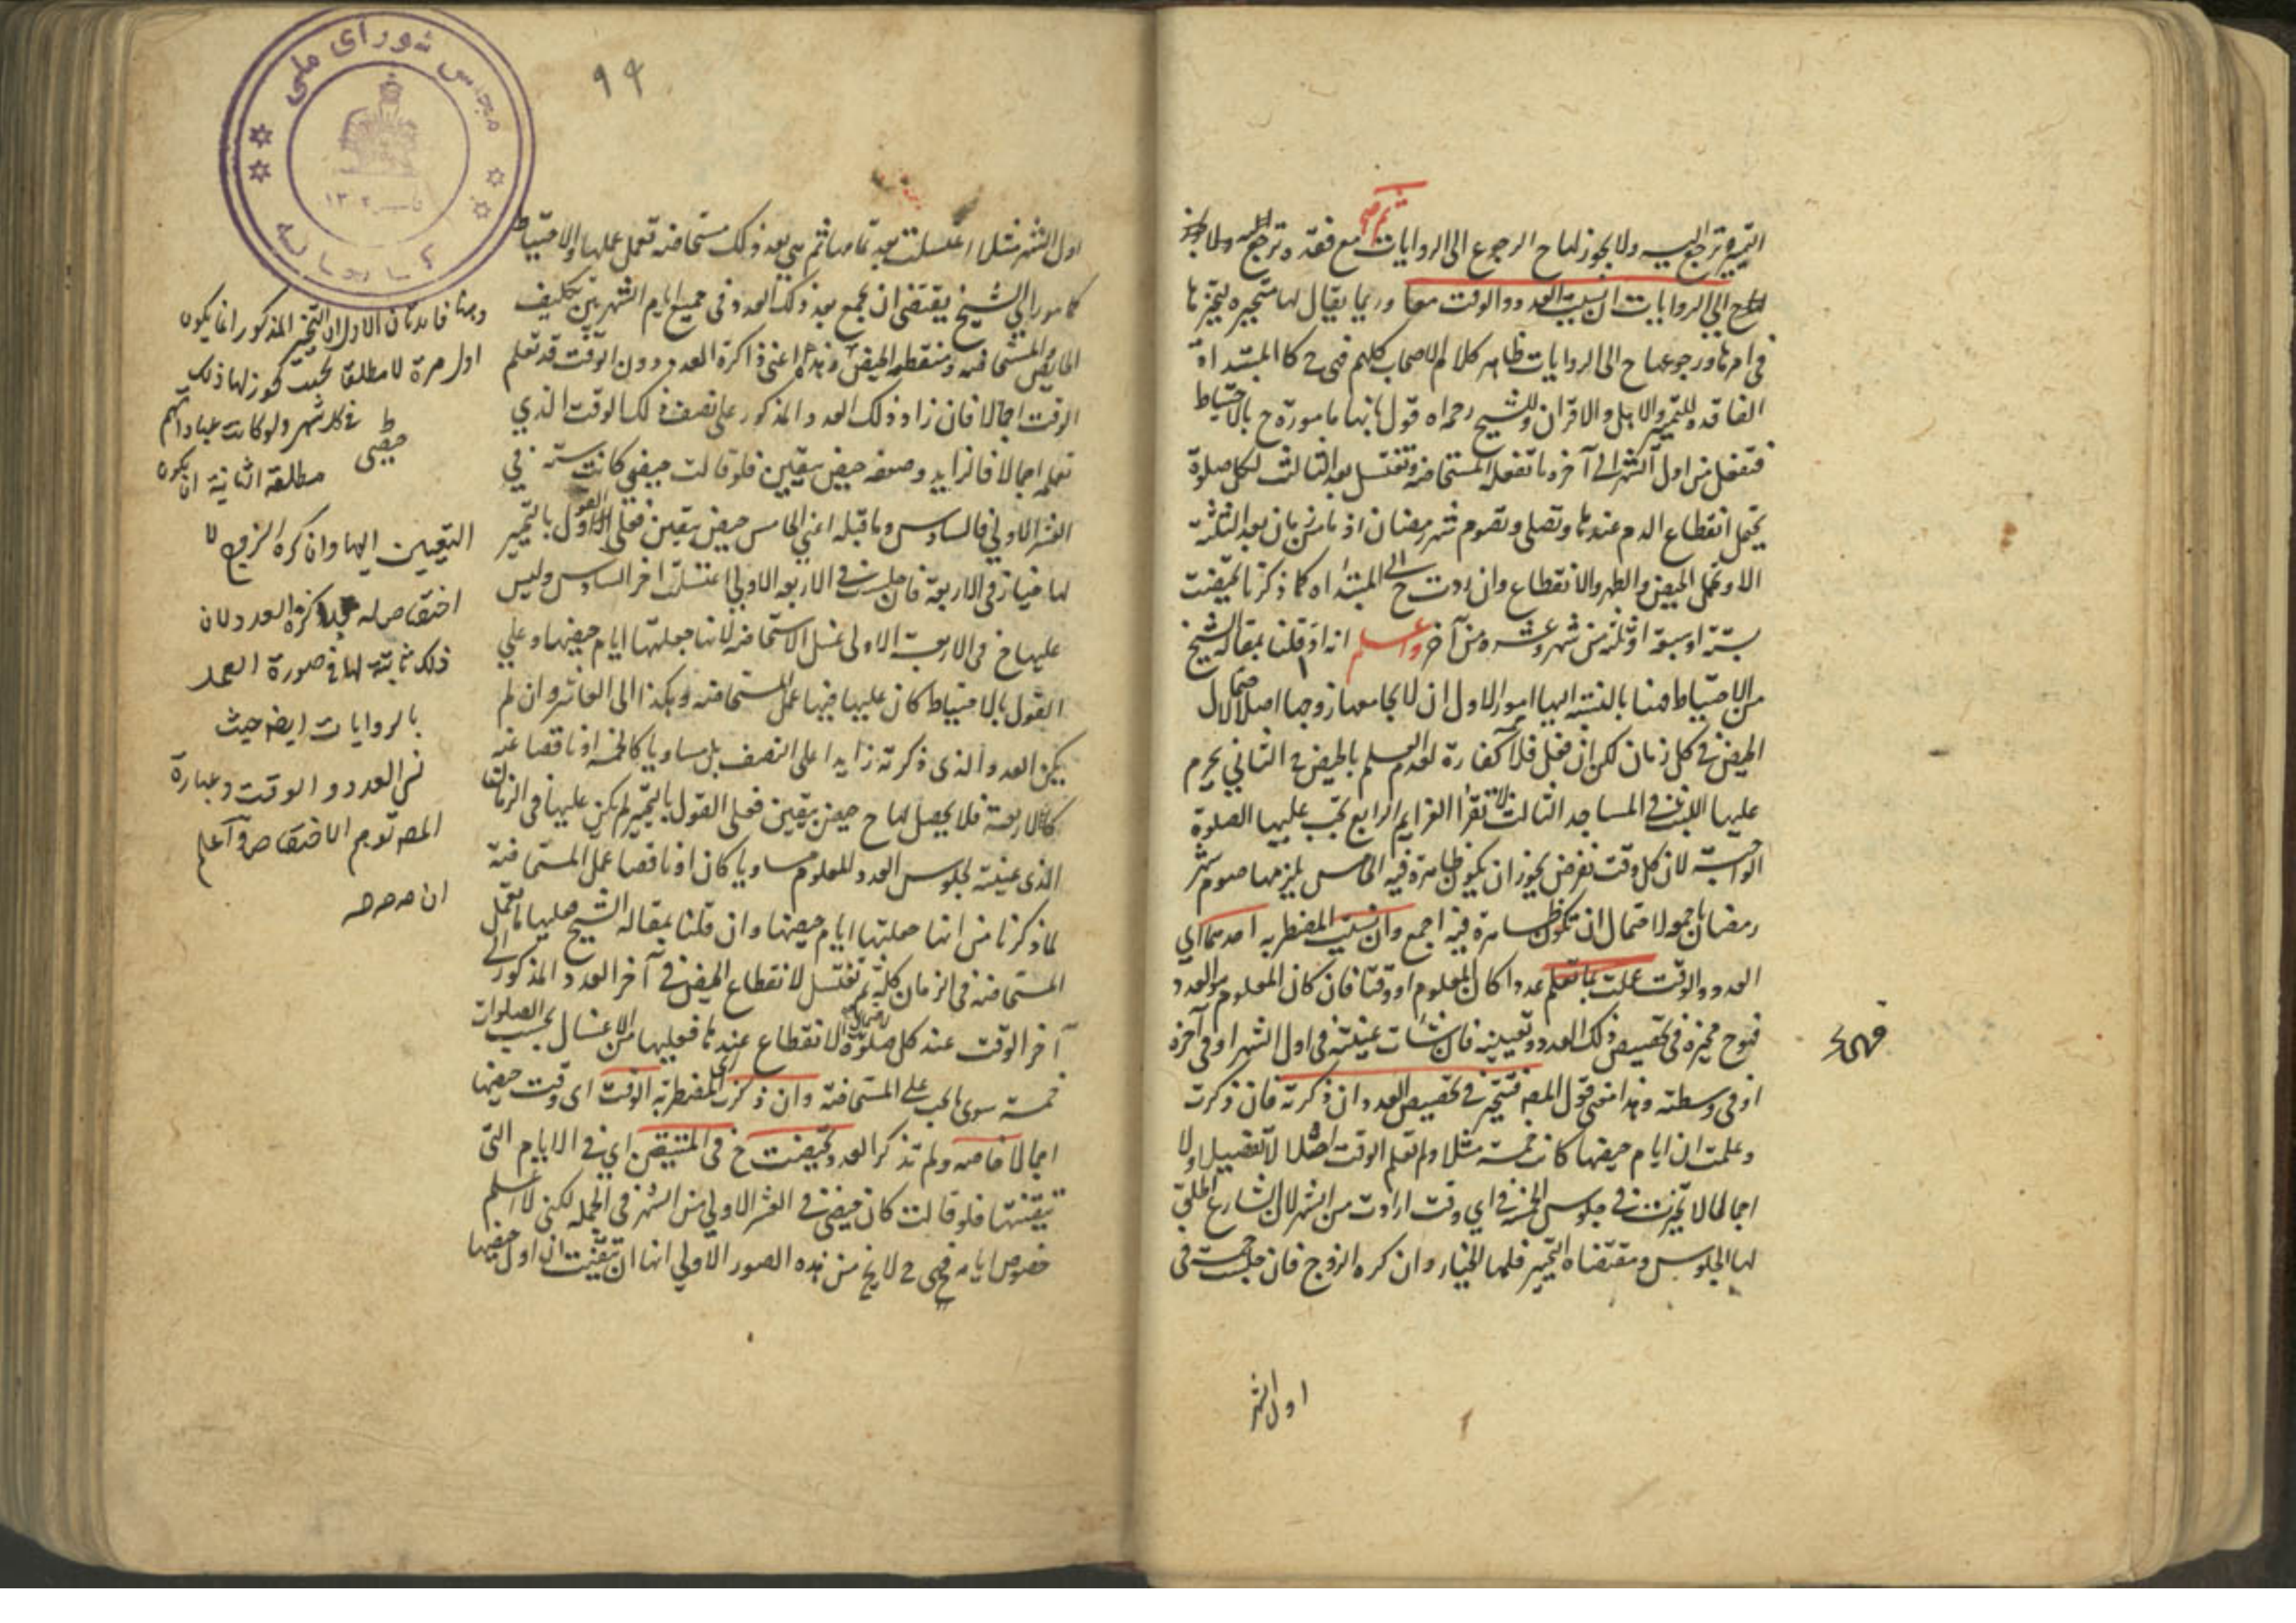 التميز ترجع اليه ولا يجوز لها ح الرجوع الى الروايات مع فقده وترجع
ح الى الروايات ان نسيت العدد والوقت معا وربما يقال لها متحيرة لتحيرها
في امرها ورجوعها ح الى الروايات ظاهر كلام الاصحاب كلهم فهى ح كالمبتداة
الفاقدة للتميز والاهل والاقران وللشيخ رحمه الله قول بانها مامورة ح بالاحتياط
فتفعل من اول الشهر الى آخره ما تفعله المستحاضة وتغتسل بعد الثالث لكل صلوة
يحتمل انقطاع الدم عندها وتصلى وتصوم شهر رمضان اذ ما من زمان بعد الثلثة
الا ويحتمل الحيض والطهر والانقطاع وان ردت ح الى المبتداه كما ذكرنا تحيضت
بستة او سبعة او ثلثة من شهر وعشره من آخر واعلم انه اذا قلنا بمقالة الشيخ
من الاحتياط هنا بالنسبة اليها امور الاول ان لا يجامعها زوجها اصلا لاحتمال
الحيض في كل زمان لكن ان فعل فلا كفارة لعدم العلم بالحيض ح الثاني يحرم
عليها اللبث في المساجد الثالث لا تقرأ العزايم الرابع تجب عليها الصلوة
الواجبة لان كل وقت نفرض يجوز ان يكون طاهرة فيه الخامس يلزمها صوم شهر
رمضان باجمعه لاحتمال ان تكون طاهرة فيه اجمع وان نسيت المضطربه احدهما اي
العدد والوقت عملت بما تعلم عددا كان المعلوم او وقتا فان كان المعلوم هو العدد
فهى ح مخيرة في تخصيص ذلك العدد وتعيينه فان شاءت عينته في اول الشهر او في آخره
او في وسطه وهذا معنى قول المصه فتتخير في تخصيص العدد ان ذكرته فان ذكرت
وعلمت ان ايام حيضها كانت خمسة مثلا ولم تعلم الوقت اصلا لا تفصيلا ولا
اجمالا تخيرت في جلوس الخمسة في اي وقت ارادت من الشهر لان الشارع اطلق
لها الجلوس ومقتضاه التخيير فلها الخيار وان كره الزوج فان جلست خمسة في
اول الشهر
٩٤
اول الشهر مثلا اغتسلت بعد تمامها ثم هي بعد ذلك مستحاضة تعمل عملها والاحتياط
كما مر راي الشيخ يقتضى ان تجمع بعد ذلك العدد في جميع ايام الشهر بين تكليف
الحايض والمستحاضة ومنقطعة الحيض وهذه اعنى ذاكرة العدد دون الوقت قد تعلم
الوقت اجمالا فان زاد ذلك العدد المذكور على نصف ذلك الوقت الذي
تعلمه اجمالا فالزايد وضعفه حيض بيقين فلو قالت حيضي كانت ستة في
العشر الاولى فالسادس وما قبله اعني الخامس حيض بيقين فعلى القول الاول بالتخيير
لها خيار في الاربعة فان جلست في الاربعة الاولى اغتسلت اخر السادس وليس
عليها ح في الاربعة الاولى غسل الاستحاضة لانها جعلتها ايام حيضها وعلى
القول بالاحتياط كان عليها فيها عمل المستحاضة وهكذا الى العاشر وان لم
يكن العدد الذى ذكرته زايدا على النصف بل مساويا كالخمسة او ناقصا عنه
كالاربعة فلا يحصل لها ح حيض بيقين فعلى القول بالتخيير لم يكن عليها في الزمان
الذى عينته لجلوس العدد المعلوم مساويا كان او ناقصا عمل المستحاضة
لما ذكرنا من انها جعلتها ايام حيضها وان قلنا بمقالة الشيخ فعليها ما تعمل
المستحاضة في الزمان كله ثم تغتسل لانقطاع الحيض في آخر العدد المذكور الى
آخر الوقت عند كل صلوة لاحتمال الانقطاع عندها فعليها من الاغسال بحسب الصلوات
خمسة سوى ما تجب على المستحاضة وان ذكرت المضطربة الوقت اى وقت حيضها
اجمالا خاصة ولم تذكر العدد تحيضت ح في المتيقن اي في الايام التي
تيقنتها فلو قالت كان حيضى في العشر الاولى من الشهر في الجمله لكنى لا اعلم
خصوص ايامه فهى ح لا يخ من هذه الصور الاولى انها ان تيقنت ان اول حيضها
وهنا فائدتان الاولى ان التخيير المذكور انما يكون
اول مرة لا مطلقا بحيث يجوز لها ذلك
في كل شهر ولو كانت عباراتهم
مطلقة الثانية ان يكون
التعيين اليها وان كره الزوج لا
اختصاص له بذاكرة العدد لان
ذلك ثابت لها في صورة العمل
بالروايات ايضه حيث
نس العدد والوقت وعبارة
المصه توهم الاختصاص واعلم
مجلس شوراى ملى
كتابخانه
١٣٠٢